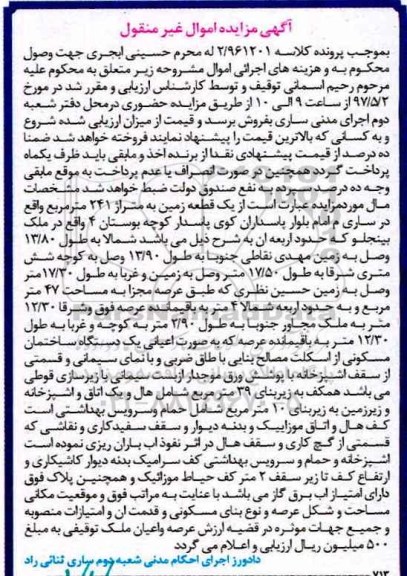 آگهی مزایده اموال غیر منقول
بموجب پرونده کلاسه ۲/۹۶۱۲۰۱ له محرم حسینی ابجری جهت وصول
محکوم به و هزینه های اجرائی اموال مشروحه زیر متعلق به محکوم علیه
مرحوم رحیم اسمانی توقیف و توسط کارشناس ارزیابی و مقرر شد در مورخ
۹۷/۵/۲ از ساعت ۹ الی ۱۰ از طریق مزایده حضوری درمحل دفتر شعبه
دوم اجرای مدنی ساری بفروش برسد و قیمت از میزان ارزیابی شده شروع
و به کسانی که بالاترین قیمت را پیشنهاد نمایند فروخته خواهد شد ضمنا
ده درصد از قیمت پیشنهادی نقدا از برنده اخذ و مابقی باید ظرف یکماه
پرداخت گردد همچنین در صورت انصراف یا عدم پرداخت به موقع مابقی
وجه ده درصد سپرده به نفع صندوق دولت ضبط خواهد شد. مشخصات
مال موردمزایده عبارت است از یک قطعه زمین به متراژ ۲۴۱ مترمربع واقع
در ساری م امام بلوار پاسداران کوی پاسدار کوچه بوستان ۴ واقع در ملک
بینجلو که حدود اربعه ان به شرح ذیل می باشد شمالا به طول ۱۳/۸۰
وصل به زمین مهدی نقاطی جنوبا به طول ۱۳/۹۰ وصل به کوچه شش
متری شرقا به طول ۱۷/۵۰ متر وصل به زمین و غربا به طول ۱۷/۳۰متر
وصل به زمین حسین نظری که طبق عرصه مجزا به مساحت ۴۷ متر
مربع و به حدود اربعه شمالا ۴ متر به باقیمانده زمین فوق وشرقا ۱۲/۳۰
متر به ملک مجاور جنوبا به طول ۲/۹۰ متر به کوچه و غربا به طول
۱۲/۳۰ متر به باقیمانده عرصه که به صورت اعیانی یک دستگاه ساختمان
مسکونی از اسکلت مصالح بنایی با طاق ضربی و با نمای سیمانی و قسمتی
از سقف اشپزخانه با پوشش ورق موجدار ایزنت سیمانی با زیرسازی قوطی
می باشد همکف به زیربنای ۳۹ متر مربع شامل هال و یک اتاق و اشپزخانه
و زیرزمین به زیربنای ۱۰ متر مربع شامل حمام وسرویس بهداشتی است
کف هال و اتاق موزاییک و بدنه دیوار و سقف سفیدکاری و نقاشی که
قسمتی از گچ کاری و سقف هال در اثر نفوذ اب باران ریزی نموده است
اشپزخانه و حمام و سرویس بهداشتی کف سرامیک بدنه دیوار کاشیکاری و
ارتفاع کف تا زیر سقف ۲ متر کف حیاط موزائیک و همچنین پلاک فوق
دارای امتیاز اب برق گاز می باشد با عنایت به مراتب فوق و موقعیت مکانی
مساحت و شکل عرصه و نوع بنای مسکونی و قدمت ان و امتیازات منصوبه
و جمیع جهات موثره در قضیه ارزش عرصه واعیان ملک توقیفی به مبلغ
۵۰۰ میلیون ریال ارزیابی و اعلام می گردد
دادورز اجرای احکام مدنی شعبه دوم ساری ثنائی راد
۷۱۳